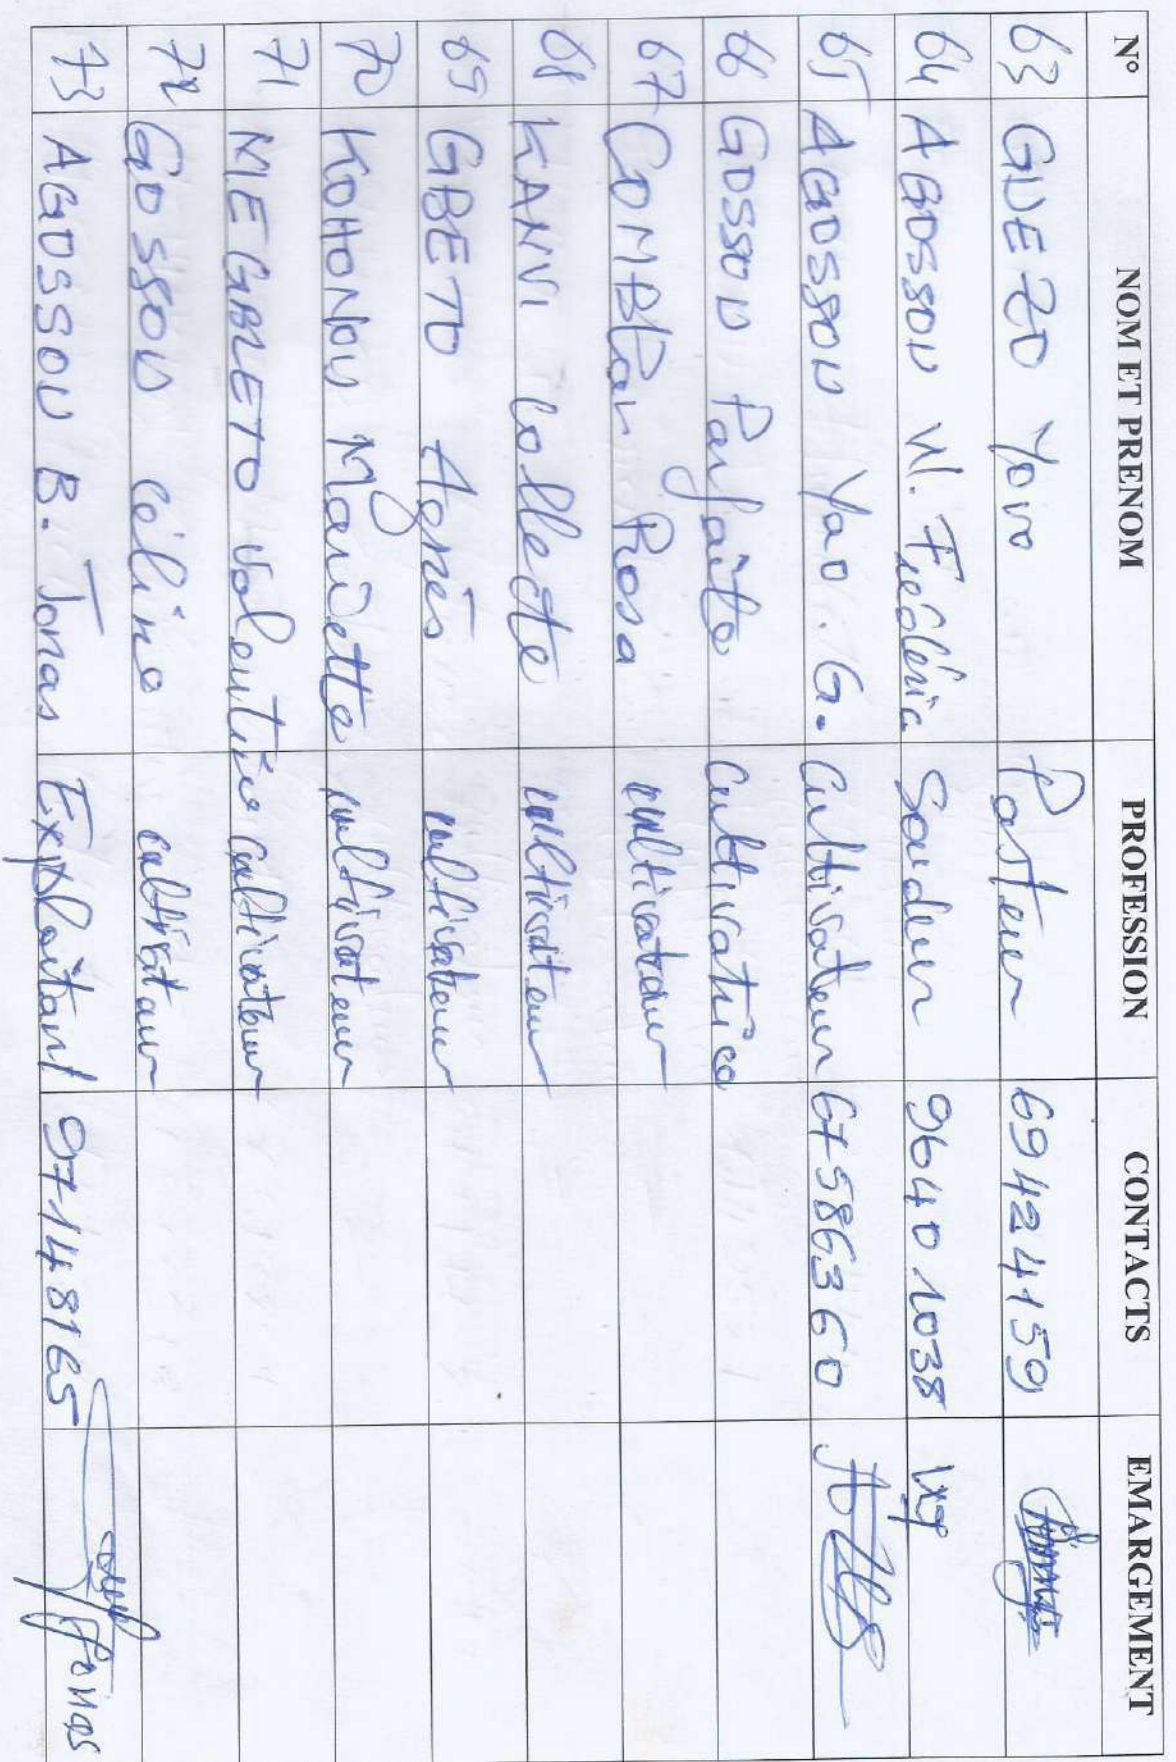 N° NOM ET PRENOM PROFESSION CONTACTS EMARGEMENT
63 GUEZO Yovo Pasteur 69424159
64 AGOSSOU W. Frédéric Soudeur 96401038
65 AGOSSOU Yao. G. Cultivateur 67586360
66 GOSSOU Parfaite Cultivatrice
67 COMBLan Rosa cultivateur
68 KANVI Collecte cultivateur
69 GBETO Agnès cultivateur
70 KOHONOU Mariette cultivateur
71 MEGBLETO Valentine cultivateur
72 GOSSOU céline cultivateur
73 AGOSSOU B. Jonas Exploitant 97148165 Jonas